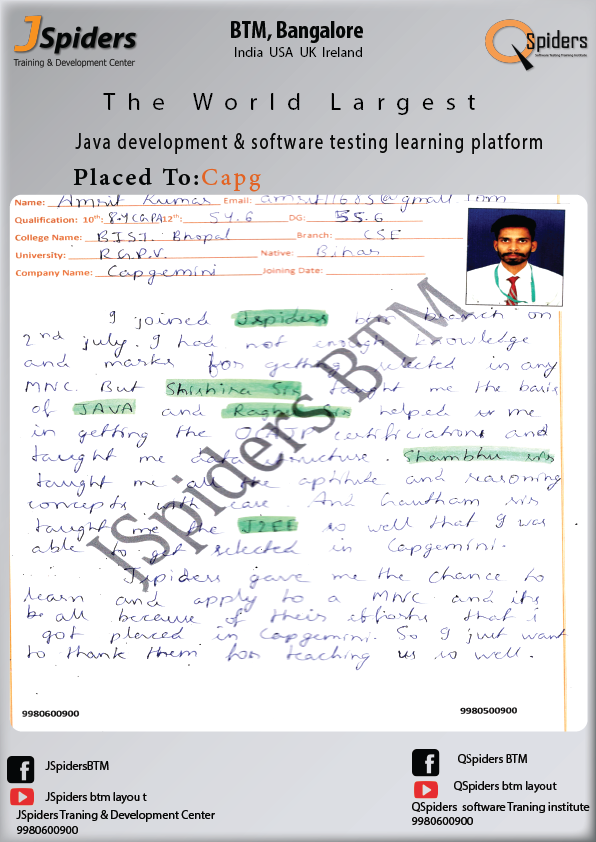 JSpiders
Training & Development Center
BTM, Bangalore
India USA UK Ireland
QSpiders
Software Testing Training Institute
The World Largest
Java development & software testing learning platform
Placed To:Capg
Name: Amrit Kumar Email: @gmail.com
Qualification: 10th: 8.4CGPA 12th: 54.6 DG: 55.6
College Name: BIST. Bhopal Branch: CSE
University: R.G.P.V. Native: Bihar
Company Name: Capgemini Joining Date:
I joined Jspiders btm branch on
2nd july. I had not enough knowledge
and marks for getting selected in any
MNC. But Shishira Sir taught me the basis
of JAVA and Raghu Sir helped me
in getting the OCAJP certificiation and
taught me data structure. Shambhu sir
taught me all the aptitude and reasoning
concepts with care. And Gautham sir
taught me the J2EE so well that I was
able to get selected in Capgemini.
Jspiders gave me the chance to
learn and apply to a MNC and its
be all because of their efforts that i
got placed in Capgemini. So I just want
to thank them for teaching us so well.
JSpiders BTM
9980600900
9980500900
JSpidersBTM
JSpiders btm layou t
JSpiders Traning & Development Center
9980600900
QSpiders BTM
QSpiders btm layout
QSpiders software Traning institute
9980600900